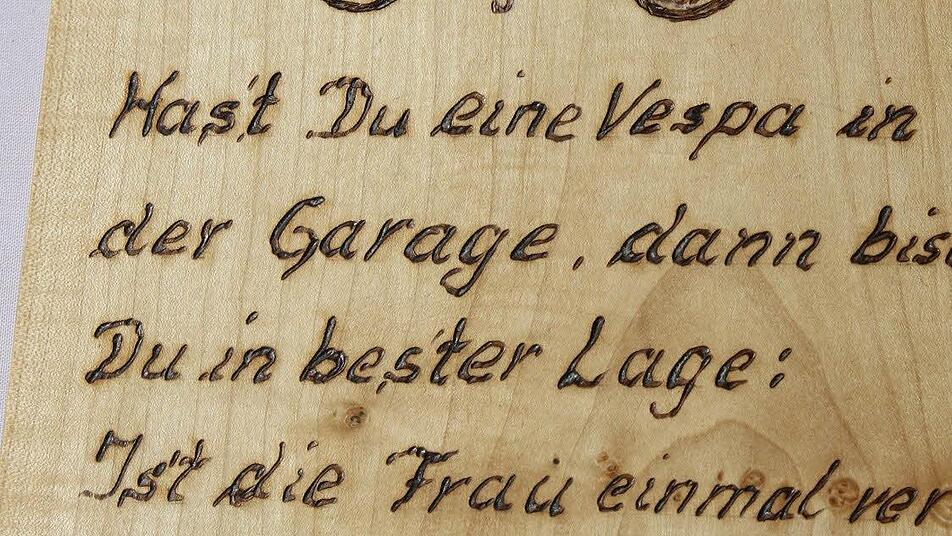 Hast Du eine Vespa in
der Garage, dann bist
Du in bester Lage:
Ist die Frau einmal